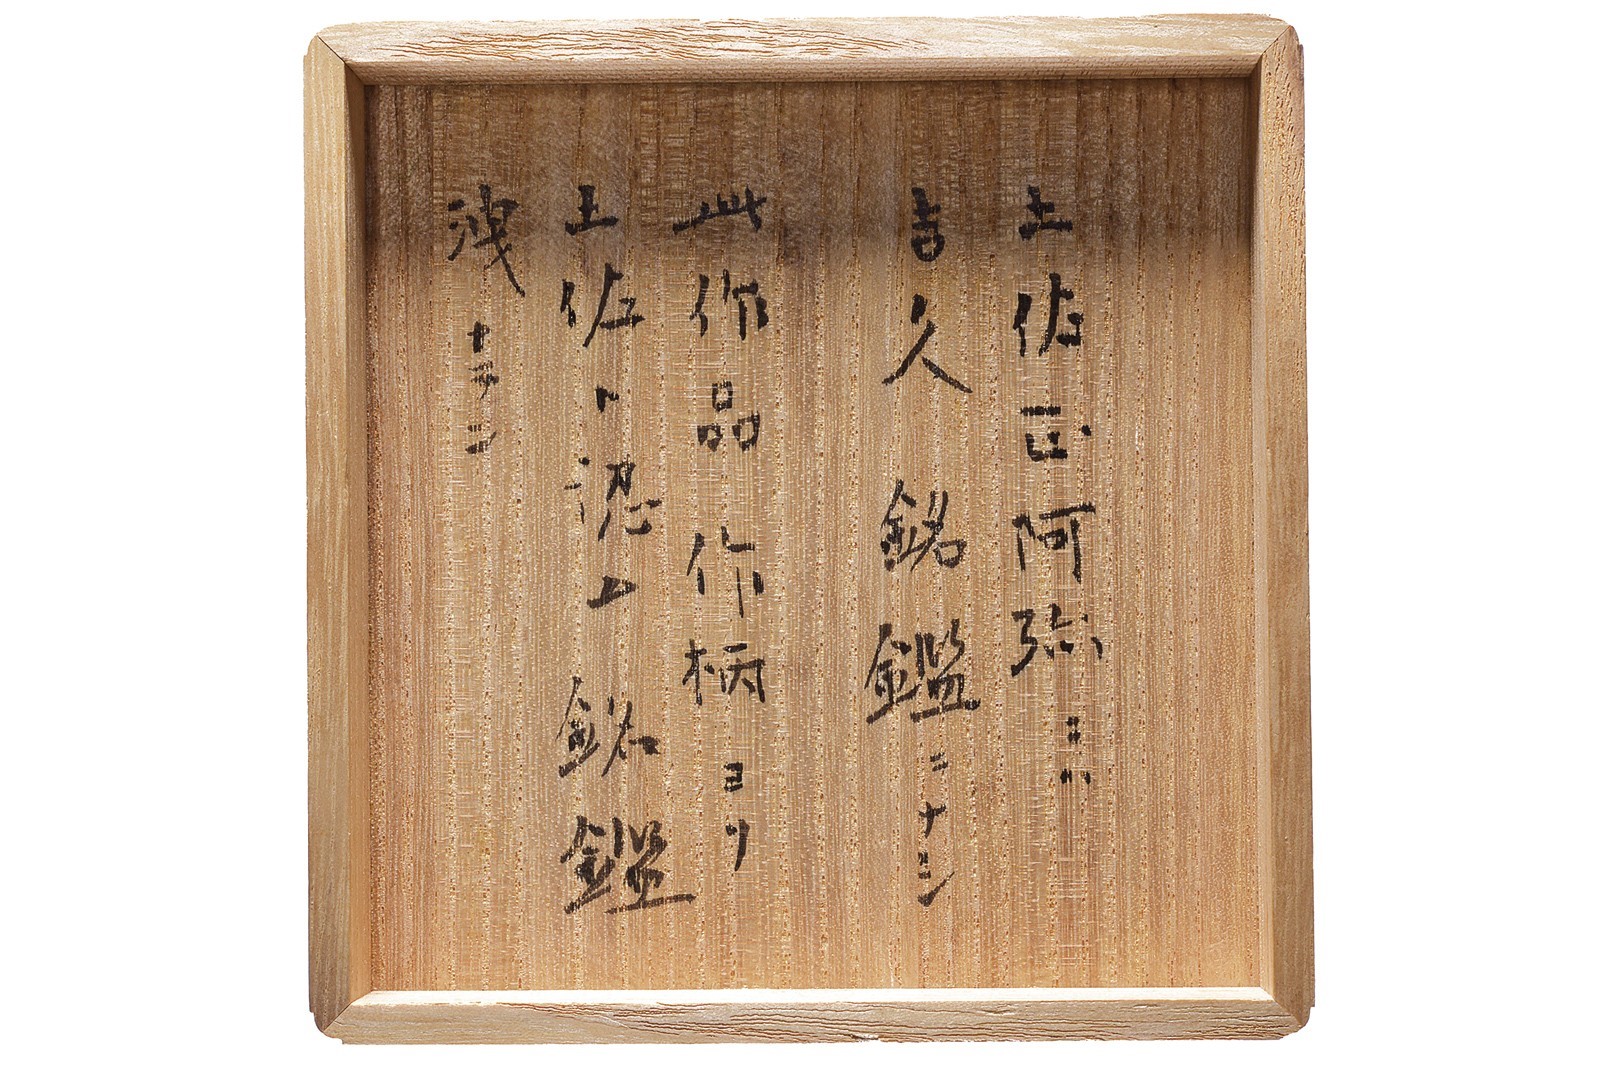 土佐正阿弥ニハ
吉久銘鑑ニナシ
此作品作柄ヨリ
土佐ト認ム銘鑑
洩ナラン